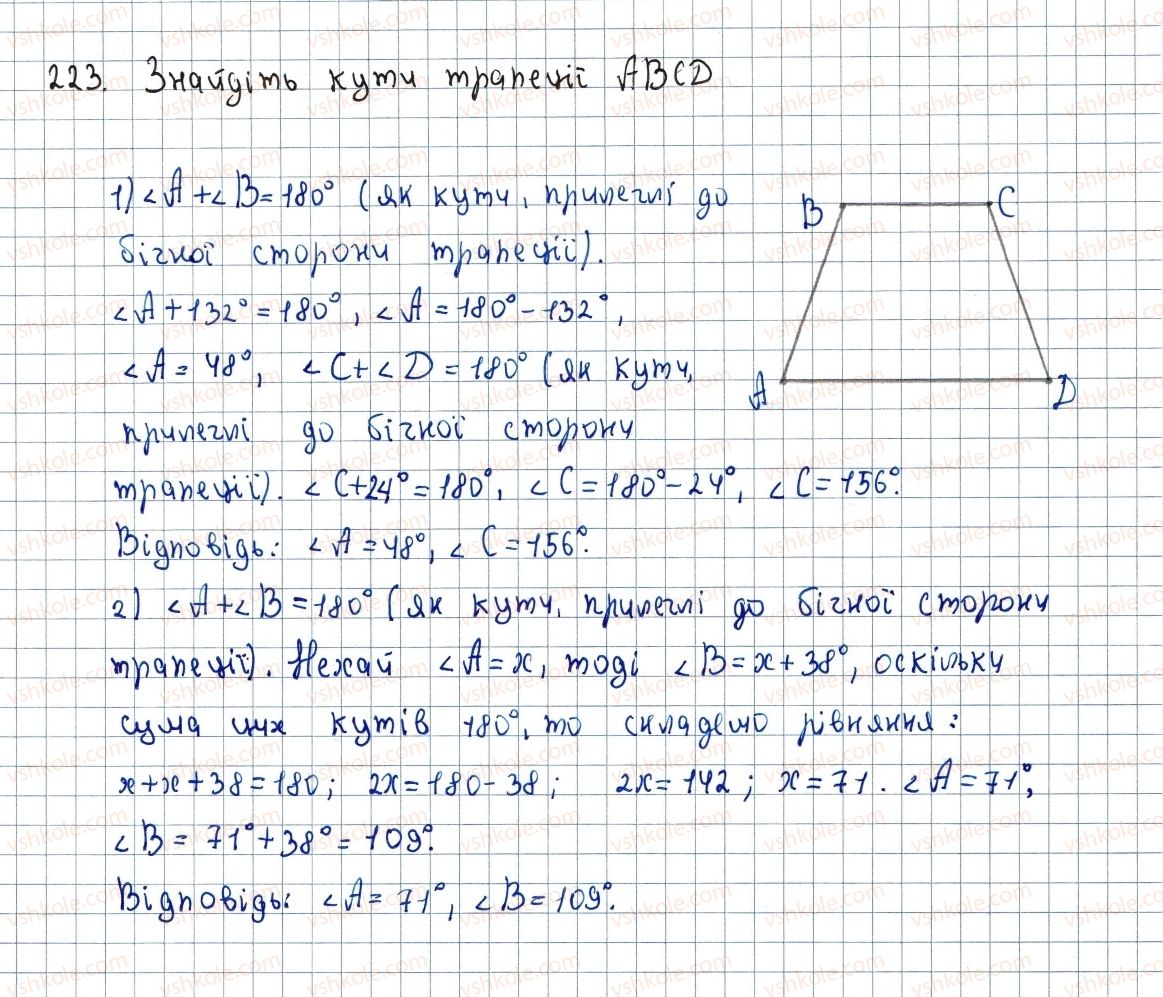 223. Знайдіть кути трапеції ABCD
1) ∠A+∠B=180° (як кути, прилеглі до
бічної сторони трапеції).
∠A+132°=180°, ∠A=180°-132°,
∠A=48°, ∠C+∠D=180° (як кути,
прилеглі до бічної сторони
трапеції). ∠C+24°=180°, ∠C=180°-24°, ∠C=156°.
Відповідь: ∠A=48°, ∠C=156°.
2) ∠A+∠B=180° (як кути, прилеглі до бічної сторони
трапеції). Нехай ∠A=x, тоді ∠B=x+38°, оскільки
сума цих кутів 180°, то складемо рівняння:
x+x+38=180; 2x=180-38; 2x=142; x=71. ∠A=71°,
∠B=71°+38°=109°.
Відповідь: ∠A=71°, ∠B=109°.
B C
A D
vshkole.com